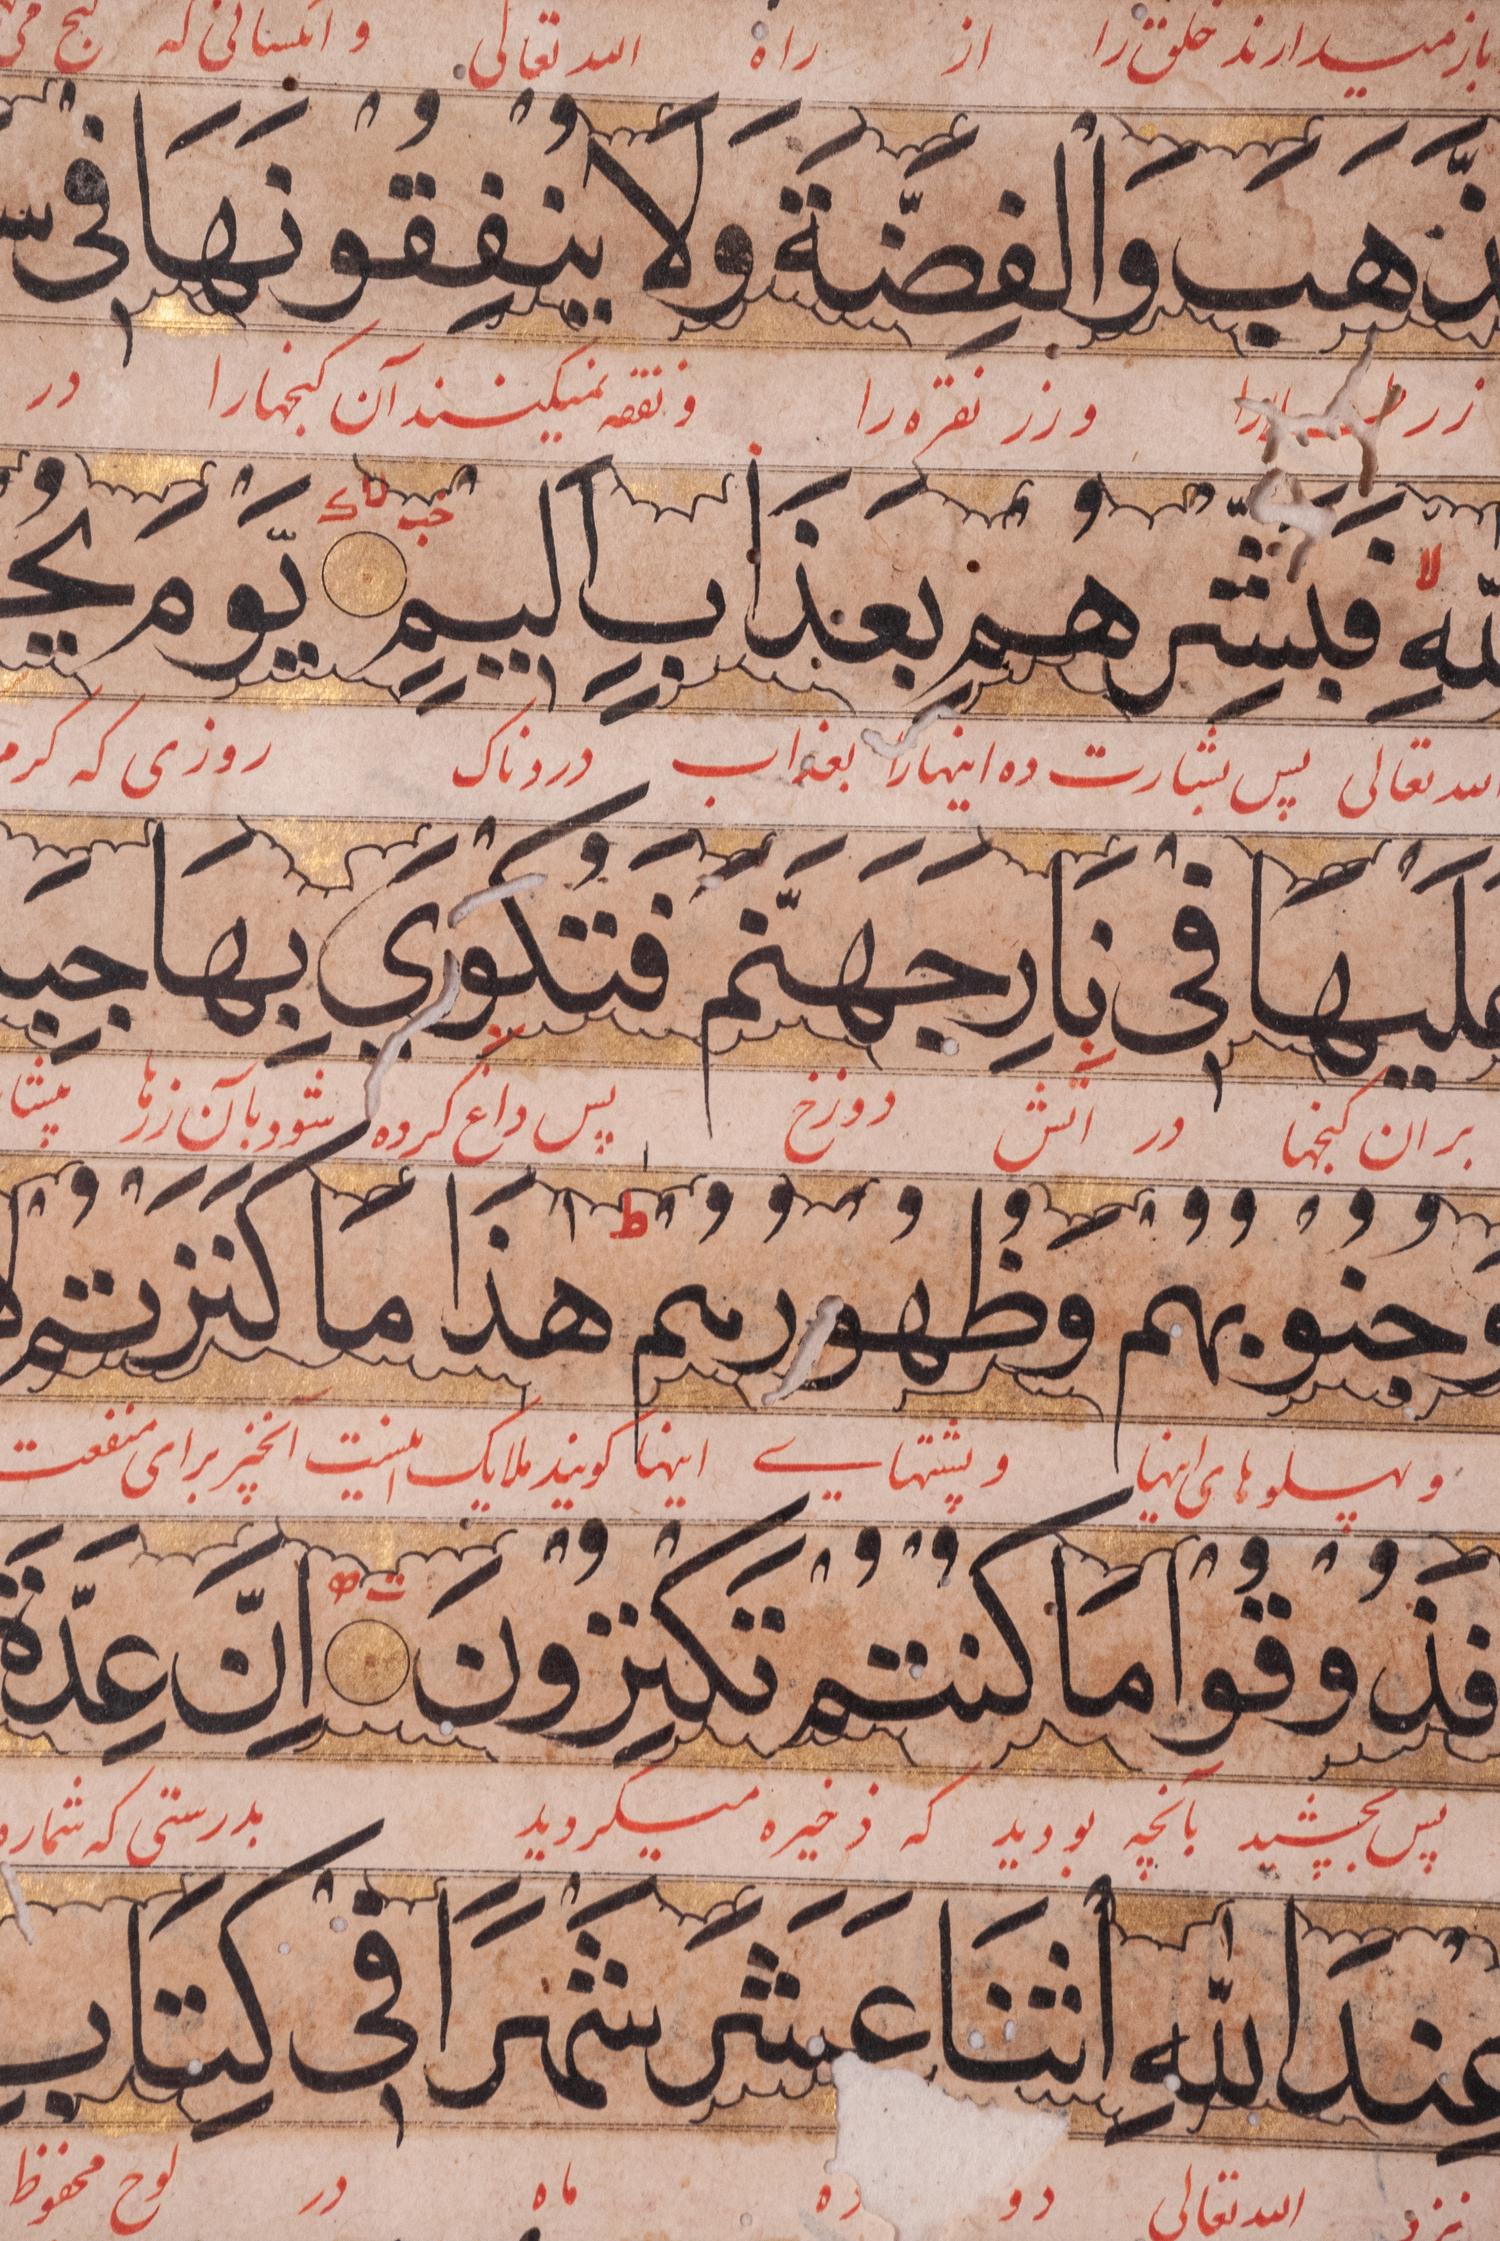 باز میدارند خلق را از راه الله تعالی و آنکسانی که گنج می
ذَّهَبَ وَالْفِضَّةَ وَلَا يُنْفِقُوْنَهَا فِي
زر و زر نقره را و نفقه نمیکنند آن گنجها را در
للّٰهِ لا فَبَشِّرْهُمْ بِعَذَابٍ اَلِيمٍ يَّوْمَ يُحْ
الله تعالی پس بشارت ده اینها را بعذاب دردناک روزی که گرم
عَلَيْهَا فِيْ نَارِ جَهَنَّمَ فَتُكْوٰي بِهَا جِبَ
بر آن گنجها در آتش دوزخ پس داغ کرده شود بآن زرها پیشا
وَجُنُوْبُهُمْ وَظُهُوْرُهُمْ ط هٰذَا مَا كَنَزْتُمْ لِ
و پهلوهای اینها و پشتهاے اینها گویند ملایک اینست آنچیز برای منفعت
فَذُوْقُوْا مَا كُنْتُمْ تَكْنِزُوْنَ اِنَّ عِدَّةَ
پس بچشید بآنچه بودید که ذخیره میکردید بدرستی که شماره
عِنْدَ اللّٰهِ اثْنَا عَشَرَ شَهْرًا فِيْ كِتَابِ
نزد الله تعالی دو ده ماه در لوح محفوظ